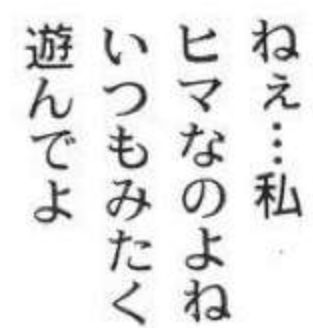 ねぇ…私
ヒマなのよね
いつもみたく
遊んでよ